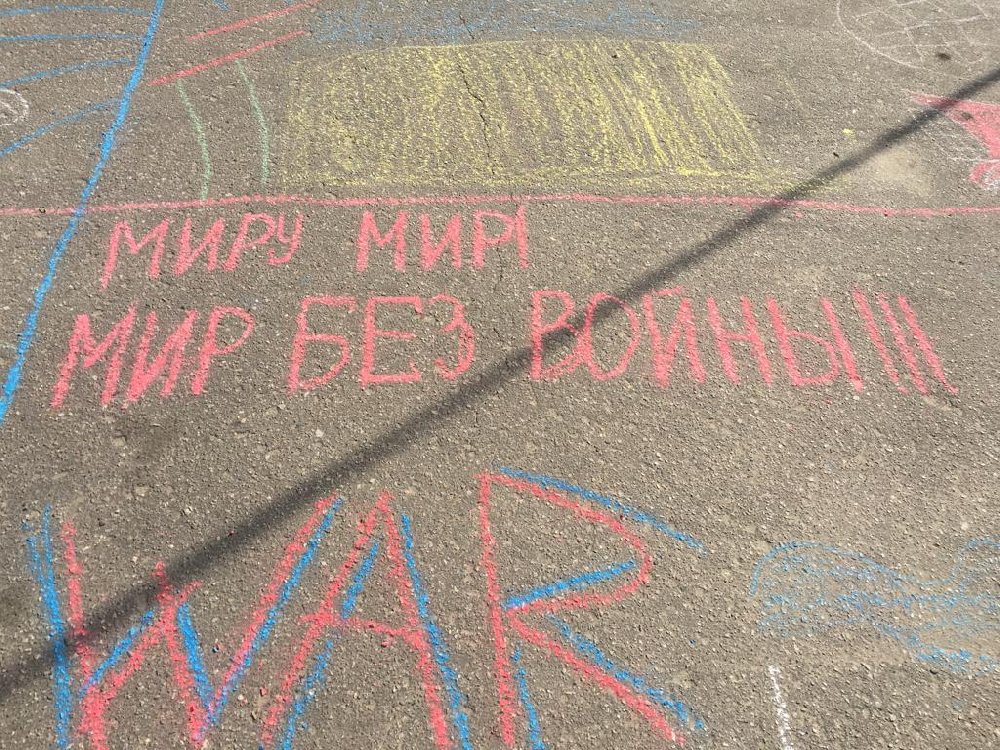 МИРУ МИР!
МИР БЕЗ ВОЙНЫ!!!
WAR